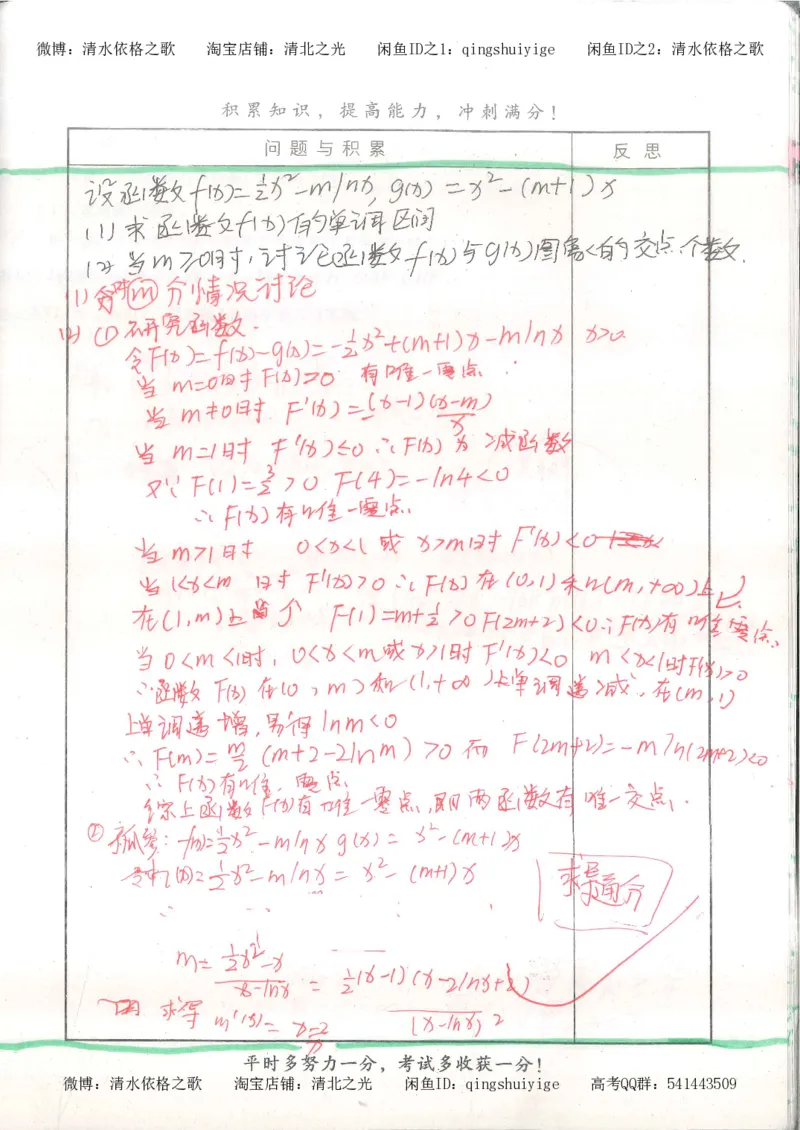 微博：清水依格之歌 淘宝店铺：清北之光 闲鱼ID之1：qingshuiyige 闲鱼ID之2：清水依格之歌
积累知识，提高能力，冲刺满分！
问题与积累 反思
设函数f(x)=½x²-mlnx, g(x)=x²-(m+1)x
(1) 求函数f(x)的单调区间
(2) 当m≥0时，讨论函数f(x)与g(x)图象的交点个数.
(1) 对m分情况讨论
(2) ① 研究函数.
令F(x)=f(x)-g(x)=-½x²+(m+1)x-mlnx x>0
当m=0时F(x)=0 有唯一零点
当m≠0时 F'(x)=-(x-1)(x-m)/x
当m=1时 F'(x)≤0 ∴F(x)为减函数
又∵F(1)=3/2>0 F(4)=-ln4<0
∴F(x)有唯一零点.
当m>1时 0<x<1或x>m时F'(x)<0
当1<x<m时F'(x)>0 ∴F(x)在(0,1)和(m,+∞)上↘
在(1,m)上个 F(1)=m+½>0 F(2m+2)<0∴F(x)有唯一零点.
当0<m<1时，0<x<m或x>1时F'(x)<0 m<x<1时F'(x)>0
∴函数F(x)在(0,m)和(1,+∞)上单调递减，在(m,1)
上单调递增，易得lnm<0
∴F(m)=m/2(m+2-2lnm)>0而F(2m+2)=-mln(2m+2)<0
∴F(x)有唯一零点
综上函数F(x)有唯一零点，即两函数有唯一交点.
② 孤参：f(x)=½x²-mlnx g(x)=x²-(m+1)x
令f(x)=½x²-mlnx=x²-(m+1)x
求导通分
m=(½x²-x)/(x-lnx)=½(x-1)(x-2lnx+2)/(x-lnx)²
求得m'(x)=
平时多努力一分，考试多收获一分！
微博：清水依格之歌 淘宝店铺：清北之光 闲鱼ID：qingshuiyige 高考QQ群：541443509